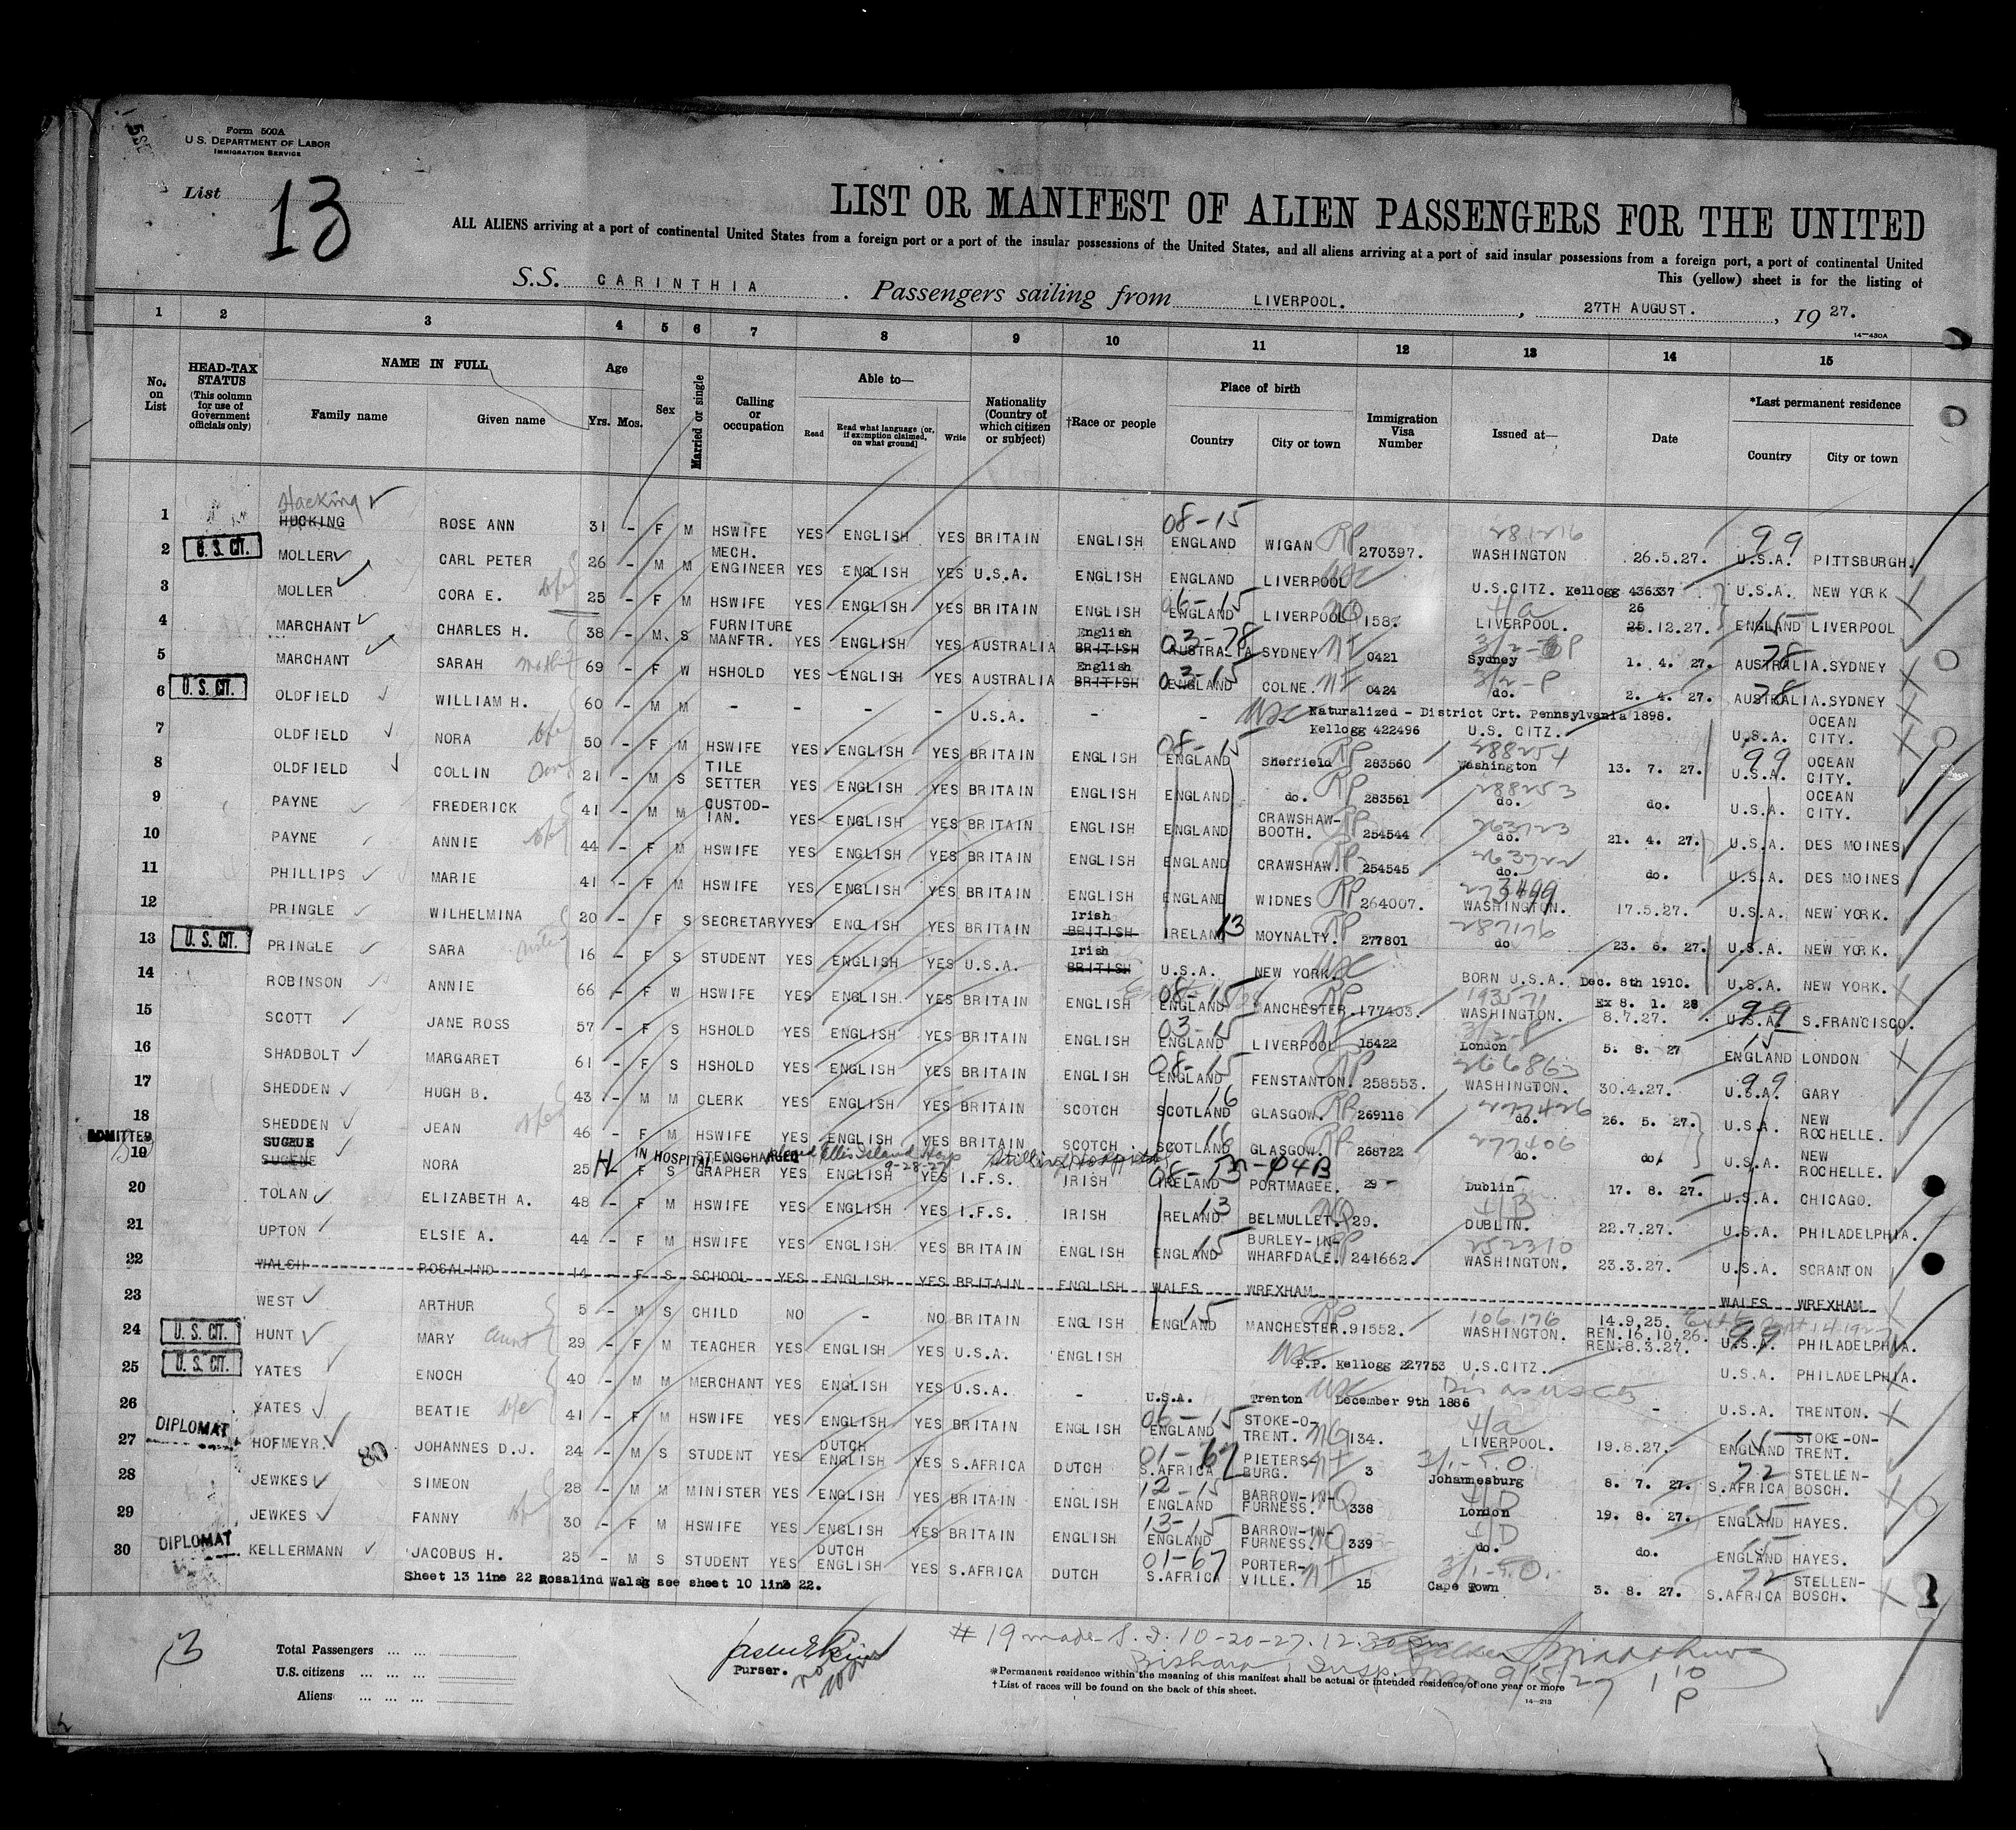 Form 500A
U. S. DEPARTMENT OF LABOR
IMMIGRATION SERVICE
List 13
LIST OR MANIFEST OF ALIEN PASSENGERS FOR THE UNITED
ALL ALIENS arriving at a port of continental United States from a foreign port or a port of the insular possessions of the United States, and all aliens arriving at a port of said insular possessions from a foreign port, a port of continental United
This (yellow) sheet is for the listing of
S.S. CARINTHIA. Passengers sailing from LIVERPOOL., 27TH AUGUST., 19 27.
14—430A
1 2 3 4 5 6 7 8 9 10 11 12 13 14 15
No. on List
HEAD-TAX STATUS (This column for use of Government officials only)
NAME IN FULL
Family name Given name
Age Yrs. Mos.
Sex
Married or single
Calling or occupation
Able to—
Read
Read what language [or, if exemption claimed, on what ground]
Write
Nationality (Country of which citizen or subject)
†Race or people
Place of birth
Country City or town
Immigration Visa Number
Issued at—
Date
*Last permanent residence
Country City or town
Hacking
1 HUCKING ROSE ANN 31 - F M HSWIFE YES ENGLISH YES BRITAIN ENGLISH 08-15 ENGLAND WIGAN RP 270397. WASHINGTON 26.5.27. 99 U.S.A. PITTSBURGH.
2 U. S. CIT. MOLLER CARL PETER 26 - M M MECH. ENGINEER YES ENGLISH YES U.S.A. ENGLISH ENGLAND LIVERPOOL U.S.CITZ. Kellogg 436337 U.S.A. NEW YORK
3 MOLLER CORA E. wife 25 - F M HSWIFE YES ENGLISH YES BRITAIN ENGLISH 06-15 ENGLAND LIVERPOOL NQ 158. 4a LIVERPOOL. 26 25.12.27. 15 ENGLAND LIVERPOOL
4 MARCHANT CHARLES H. 38 - M S FURNITURE MANFTR. YES ENGLISH YES AUSTRALIA English BRITISH 03-78 AUSTRALIA SYDNEY NI 0421 3/2-P Sydney 1. 4. 27. 78 AUSTRALIA. SYDNEY
5 MARCHANT SARAH mother 69 - F W HSHOLD YES ENGLISH YES AUSTRALIA English BRITISH 03-15 ENGLAND COLNE. NI 0424 3/2-P do. 2. 4. 27. 78 AUSTRALIA. SYDNEY
6 U. S. CIT. OLDFIELD WILLIAM H. 60 - M M - - - - U.S.A. - - USC Naturalized - District Crt. Pennsylvania 1898. Kellogg 422496 U.S. CITZ. U.S.A. OCEAN CITY.
7 OLDFIELD NORA wife 50 - F M HSWIFE YES ENGLISH YES BRITAIN ENGLISH 08-15 ENGLAND Sheffield RP 283560 288254 Washington 13. 7. 27. 99 U.S.A. OCEAN CITY.
8 OLDFIELD COLLIN Son 21 - M S TILE SETTER YES ENGLISH YES BRITAIN ENGLISH ENGLAND do. RP 283561 288253 do. do. U.S.A. OCEAN CITY.
9 PAYNE FREDERICK 41 - M M CUSTOD-IAN. YES ENGLISH YES BRITAIN ENGLISH ENGLAND CRAWSHAW-BOOTH. RP 254544 263723 do. 21. 4. 27. U.S.A. DES MOINES
10 PAYNE ANNIE wife 44 - F M HSWIFE YES ENGLISH YES BRITAIN ENGLISH ENGLAND CRAWSHAW. RP 254545 263722 do. do. U.S.A. DES MOINES
11 PHILLIPS MARIE 41 - F M HSWIFE YES ENGLISH YES BRITAIN ENGLISH ENGLAND WIDNES RP 264007. 273499 WASHINGTON. 17.5.27. U.S.A. NEW YORK.
12 PRINGLE WILHELMINA 20 - F S SECRETARY YES ENGLISH YES BRITAIN Irish BRITISH IRELAND 13 MOYNALTY. RP 277801 do 23. 6. 27. U.S.A. NEW YORK.
13 U. S. CIT. PRINGLE SARA sister 16 - F S STUDENT YES ENGLISH YES U.S.A. Irish BRITISH U.S.A. NEW YORK. USC BORN U.S.A. Dec. 8th 1910. U.S.A. NEW YORK.
14 ROBINSON ANNIE 66 - F W HSWIFE YES ENGLISH. YES BRITAIN ENGLISH 08-15 ENGLAND MANCHESTER. RP 177403. 193571 WASHINGTON. Ex 8. 1. 28 8.7.27. 99 U.S.A. S.FRANCISCO.
15 SCOTT JANE ROSS 57 - F S HSHOLD YES ENGLISH YES BRITAIN ENGLISH 03-15 ENGLAND LIVERPOOL NI 15422 3/2-P London 5. 8. 27 15 ENGLAND LONDON
16 SHADBOLT MARGARET 61 - F S HSHOLD YES ENGLISH YES BRITAIN ENGLISH 08-15 ENGLAND FENSTANTON. RP 258553. 266863 WASHINGTON. 30.4.27. 99 U.S.A. GARY
17 SHEDDEN HUGH B. 43 - M M CLERK YES ENGLISH YES BRITAIN SCOTCH SCOTLAND 16 GLASGOW. RP 269116 do. 26. 5. 27. U.S.A. NEW ROCHELLE.
18 SHEDDEN JEAN wife 46 - F M HSWIFE YES ENGLISH YES BRITAIN SCOTCH SCOTLAND 16 GLASGOW. RP 268722 277406 do. do. U.S.A. NEW ROCHELLE.
ADMITTED
19 SUGRUE SUGENE NORA 25 - H F S IN HOSPITAL DISCHARGED Ellis Island Hosp 9-28-27 STENO-GRAPHER YES ENGLISH YES I.F.S. IRISH 08-13 IRELAND 04B PORTMAGEE. 29 - Dublin 17. 8. 27. U.S.A. CHICAGO.
20 TOLAN ELIZABETH A. 48 - F M HSWIFE YES ENGLISH YES I.F.S. IRISH IRELAND 13 BELMULLET. NQ 29. 4B DUBLIN. 22.7.27. U.S.A. PHILADELPHIA.
21 UPTON ELSIE A. 44 - F M HSWIFE YES ENGLISH. YES BRITAIN ENGLISH ENGLAND 15 BURLEY-IN-WHARFDALE. RP 241662. 252310 WASHINGTON. 23.3.27. U.S.A. SCRANTON
22 WALSH ROSALIND 14 - F S SCHOOL YES ENGLISH YES BRITAIN ENGLISH WALES WREXHAM WALES WREXHAM
23 WEST ARTHUR 5 - M S CHILD NO - NO BRITAIN ENGLISH ENGLAND 15 MANCHESTER. RP 91552. 106176 WASHINGTON. 14.9.25. REN.16.10.26. REN.8.3.27. 99 U.S.A. PHILADELPHIA.
24 U. S. CIT. HUNT MARY Aunt 29 - F M TEACHER YES ENGLISH YES U.S.A. ENGLISH USC P.P. Kellogg 227753 U.S.CITZ. U.S.A. PHILADELPHIA.
25 U. S. CIT. YATES ENOCH 40 - M M MERCHANT YES ENGLISH YES U.S.A. - U.S.A. Trenton USC December 9th 1886 - U.S.A. TRENTON.
26 YATES BEATIE wife 41 - F M HSWIFE YES ENGLISH YES BRITAIN ENGLISH 06-15 ENGLAND STOKE-O-TRENT. NQ 134. 4a LIVERPOOL. 19.8.27. 15 ENGLAND STOKE-ON-TRENT.
27 DIPLOMAT HOFMEYR. 80 JOHANNES D.J. 24 - M S STUDENT YES DUTCH ENGLISH YES S.AFRICA DUTCH 01-67 S.AFRICA PIETERS-BURG. NI 3 Johannesburg 8. 7. 27. 72 S.AFRICA STELLEN-BOSCH.
28 JEWKES SIMEON 28 - M M MINISTER YES ENGLISH YES BRITAIN ENGLISH 12-15 ENGLAND BARROW-IN-FURNESS. NQ 338 4D London 19. 8. 27. 15 ENGLAND HAYES.
29 JEWKES FANNY wife 30 - F M HSWIFE YES ENGLISH YES BRITAIN ENGLISH 13-15 ENGLAND BARROW-IN-FURNESS. NQ 339 4D do. do. 15 ENGLAND HAYES.
30 DIPLOMAT KELLERMANN JACOBUS H. 25 - M S STUDENT YES DUTCH ENGLISH YES S.AFRICA DUTCH 01-67 S.AFRICA PORTER-VILLE. NI 15 Cape Town 3. 8. 27. 72 S.AFRICA STELLEN-BOSCH.
Sheet 13 line 22 Rosalind Walsg see sheet 10 line 22.
13
Total Passengers ... ...
U.S. citizens ... ... ...
Aliens ... ... ...
Purser.
# 19 made S. I. 10-20-27. 12.30 pm
9/5/27
*Permanent residence within the meaning of this manifest shall be actual or intended residence of one year or more
† List of races will be found on the back of this sheet.
14—213